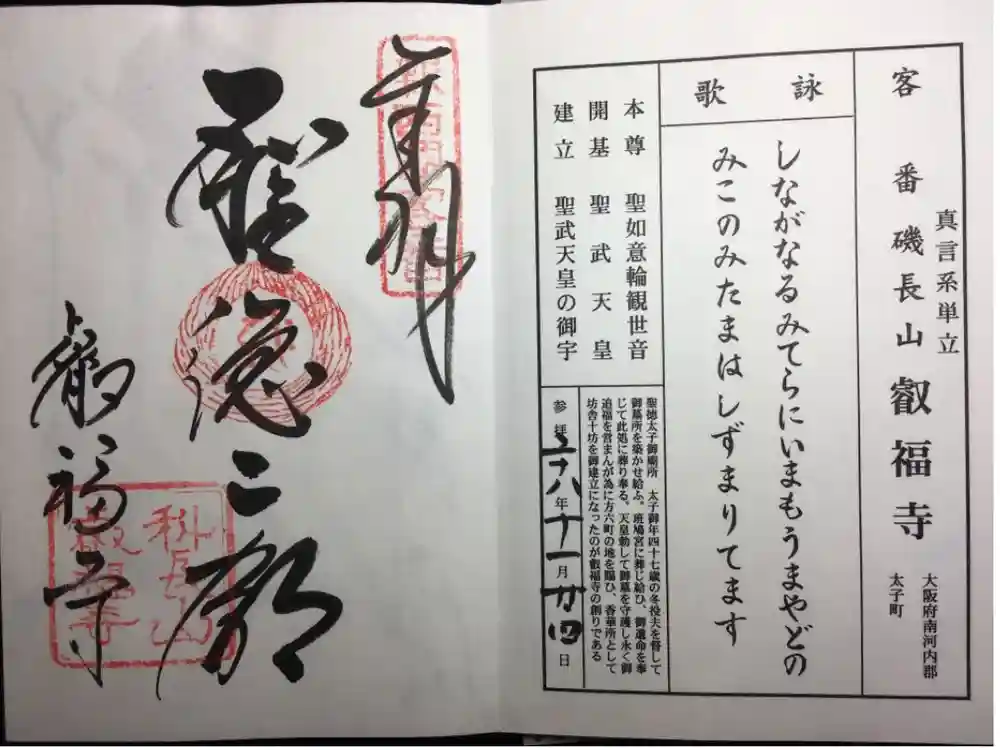 真言系単立
客番 磯長山 叡福寺
大阪府南河内郡
太子町
詠歌
しながなるみてらにいまもうまやどの
みこのみたまはしずまりてます
本尊 聖如意輪観世音
開基 聖武天皇
建立 聖武天皇の御宇
聖徳太子御廟所 太子御年四十七歳の冬役夫を督して
御墓所を築かせ給ふ。斑鳩宮に葬じ給ひ、御遺命を奉
じて此処に葬り奉る。天皇勅して御墓を守護し永く御
追福を営まんが為に方六町の地を賜ひ、香華所として
坊舎十坊を御建立になったのが叡福寺の創りである
参拝 二十八年 十一月 廿四日
奉拝
聖徳
廟
叡福寺
科長山
叡福寺